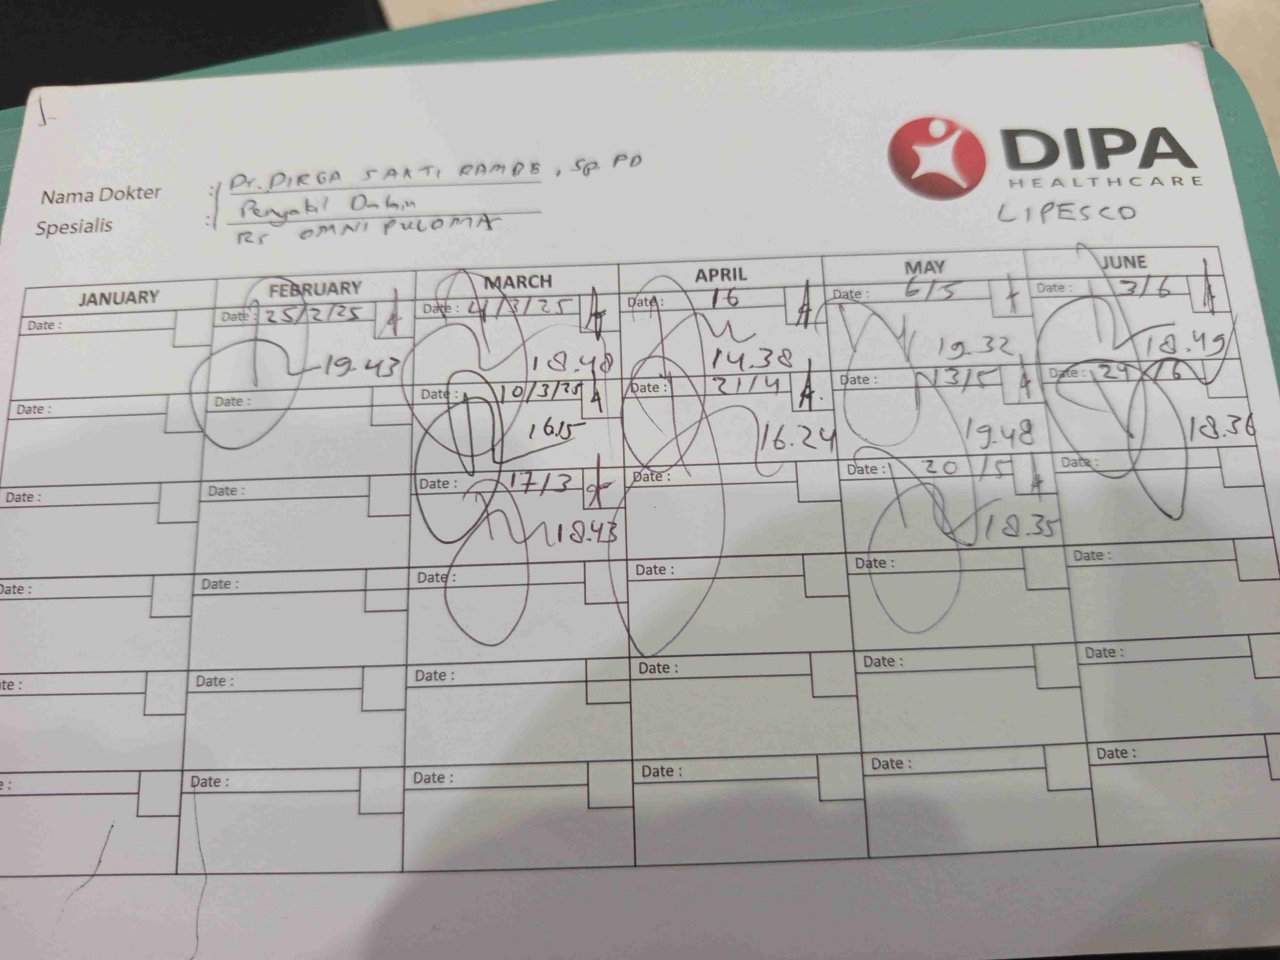 1-
DIPA
HEALTHCARE
LIPESCO
Nama Dokter : Dr. DIRGA SAKTI RAMBE, Sp. PD
Spesialis : Penyakit Dalam
RS OMNI PULOMA
JANUARY FEBRUARY MARCH APRIL MAY JUNE
Date : Date : 25/2/25 Date : 4/3/25 Date : 16 Date : 6/5 Date : 3/6
19.43 18.48 14.38 19.32 18.49
Date : Date : Date : 10/3/25 Date : 21/4 Date : 13/5 Date : 24/6
16.15 16.24 19.48 18.36
Date : Date : Date : 17/3 Date : Date : 20/5 Date :
18.43 18.35
Date : Date : Date : Date : Date : Date :
Date : Date : Date : Date : Date :
te : Date : Date : Date : Date : Date :